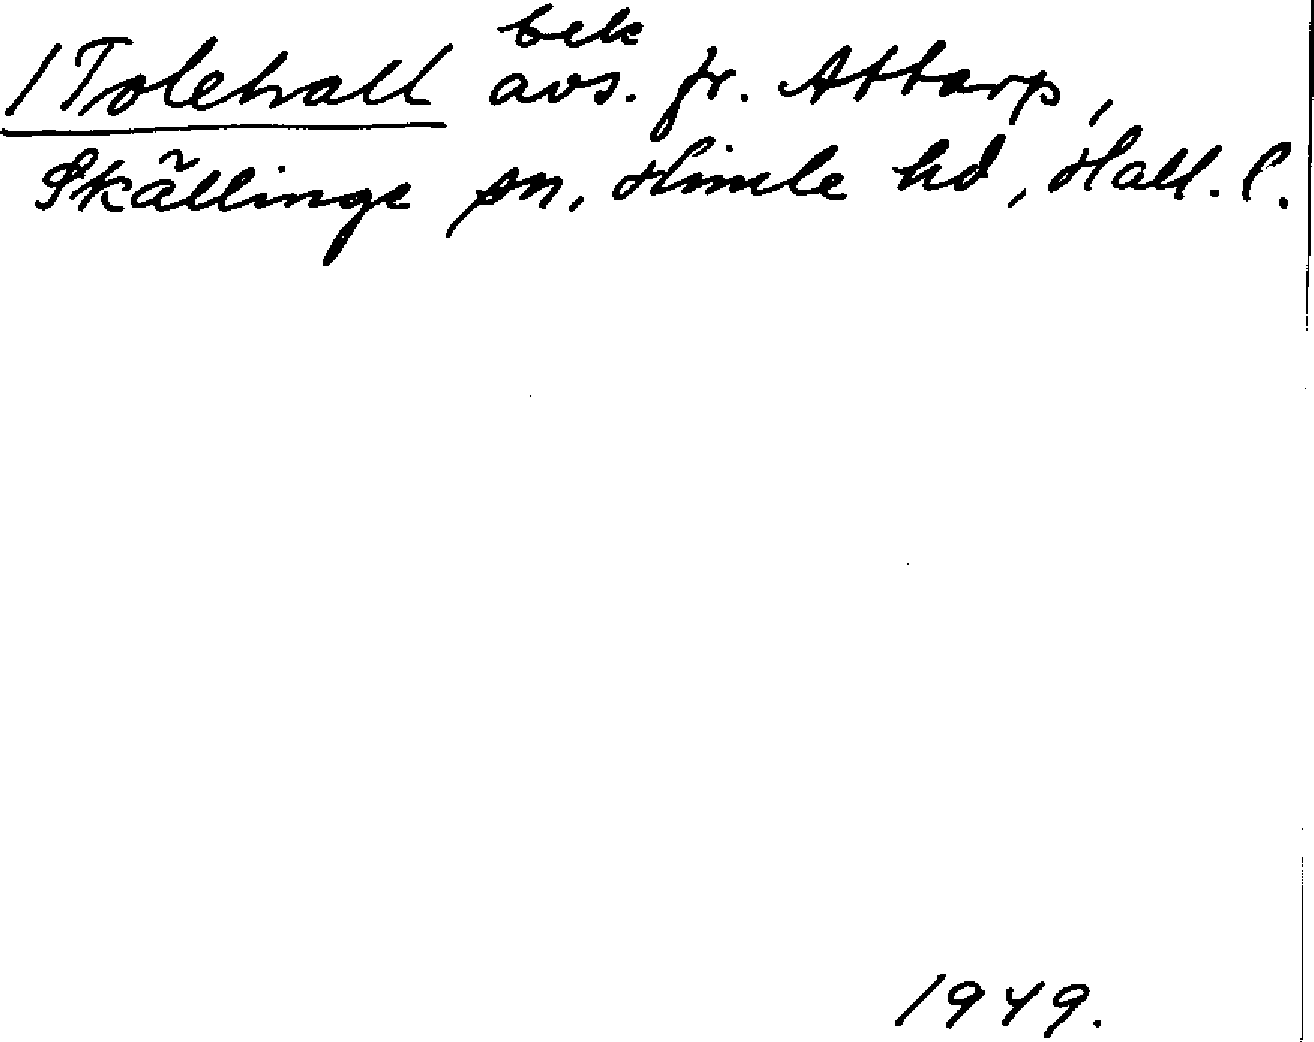 bek
/Tolehall avs. fr. Attarp,
Skällinge sn, Himle hd, Hall. l.
1949.